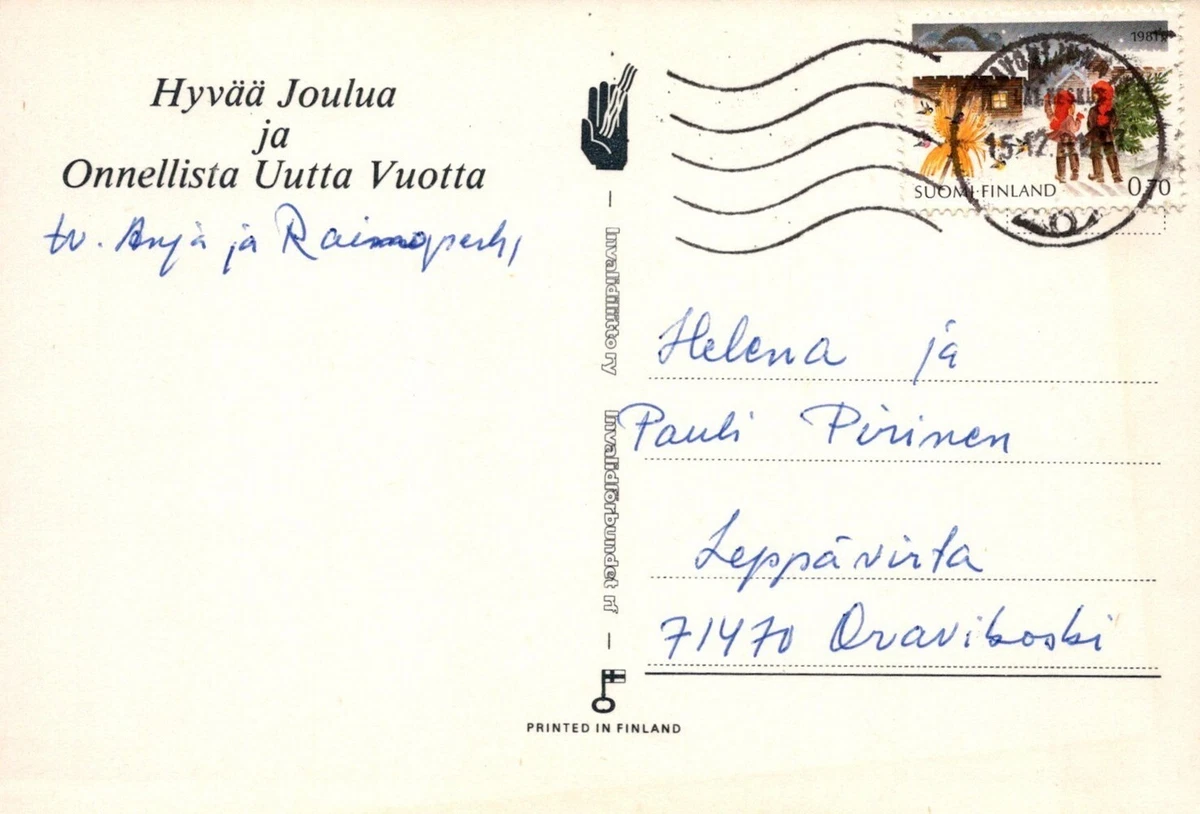 Hyvää Joulua
ja
Onnellista Uutta Vuotta
tv. Anja ja Raimo perh.
Invalidiliitto ry
Invalidförbundet rf
PRINTED IN FINLAND
1981
SUOMI-FINLAND 0,70
15.12.81
Helena ja
Pauli Pirinen
Leppävirta
71470 Oravikoski